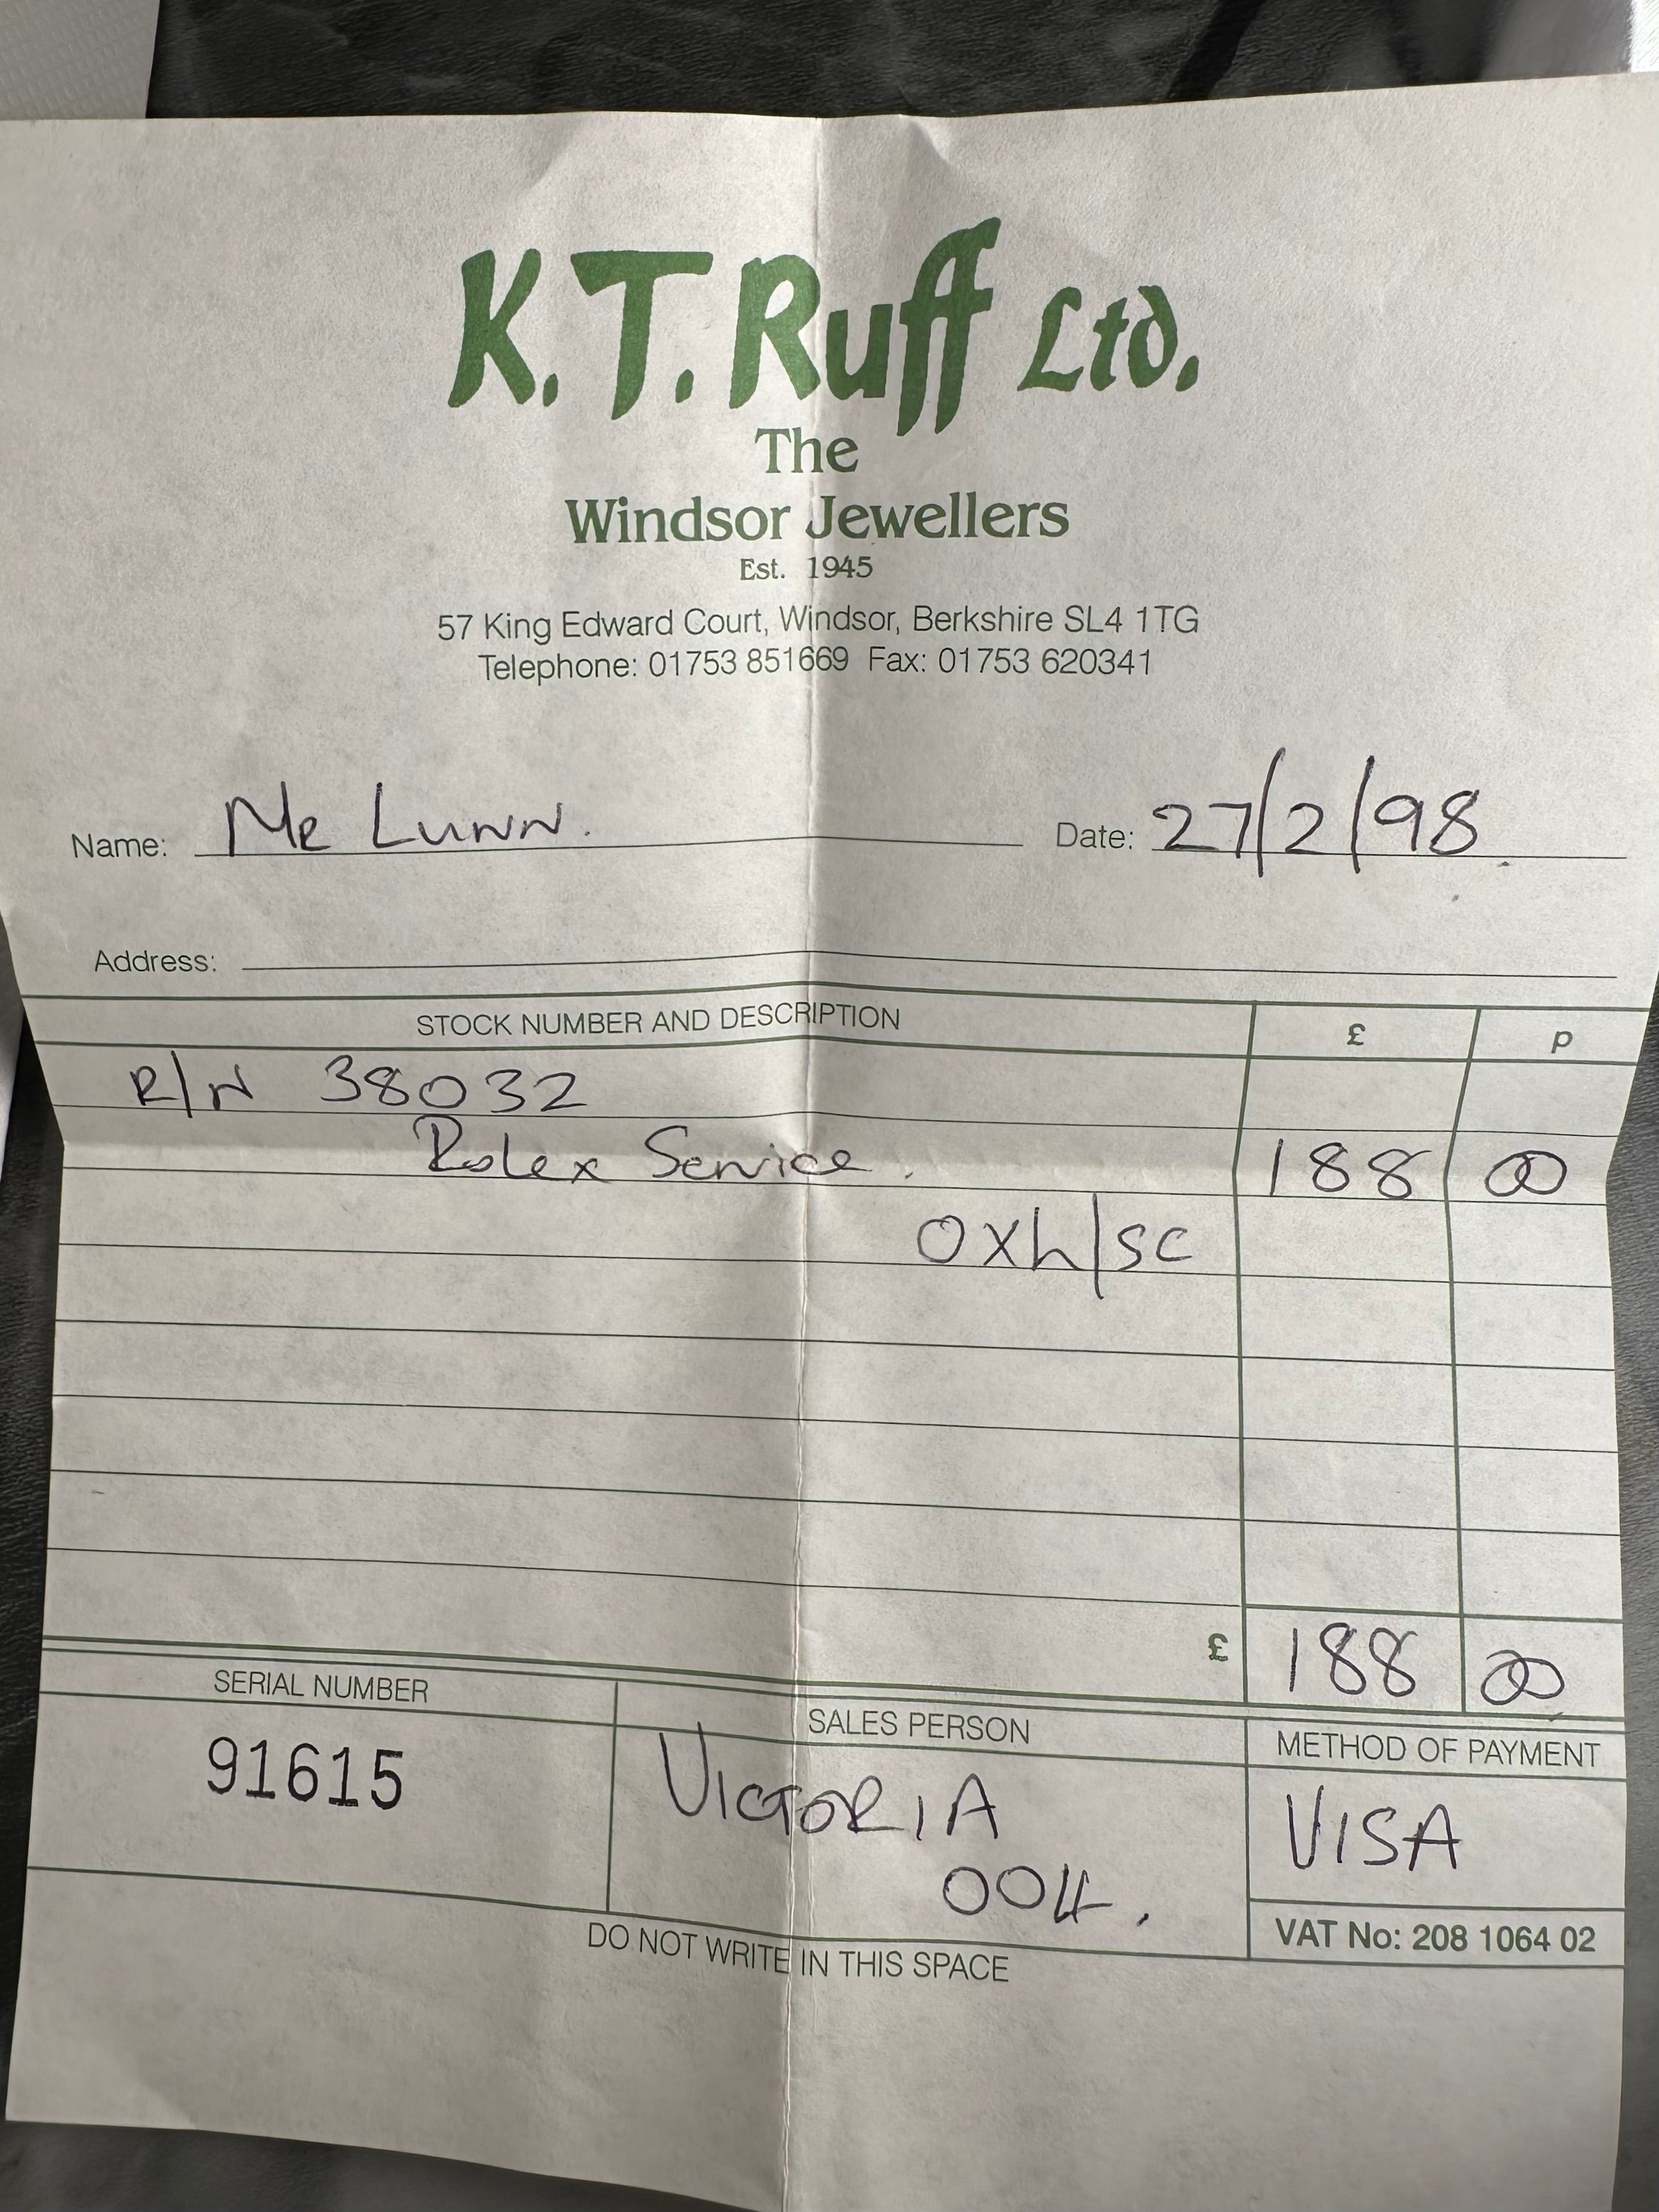 K.T. Ruff Ltd.
The
Windsor Jewellers
Est. 1945
57 King Edward Court, Windsor, Berkshire SL4 1TG
Telephone: 01753 851669 Fax: 01753 620341
Name: Mr Lunn. Date: 27/2/98.
Address:
STOCK NUMBER AND DESCRIPTION £ p
R/N 38032
Rolex Service. 188 00
OXH/SC
£ 188 00
SERIAL NUMBER SALES PERSON METHOD OF PAYMENT
91615 VICTORIA VISA
004.
VAT No: 208 1064 02
DO NOT WRITE IN THIS SPACE